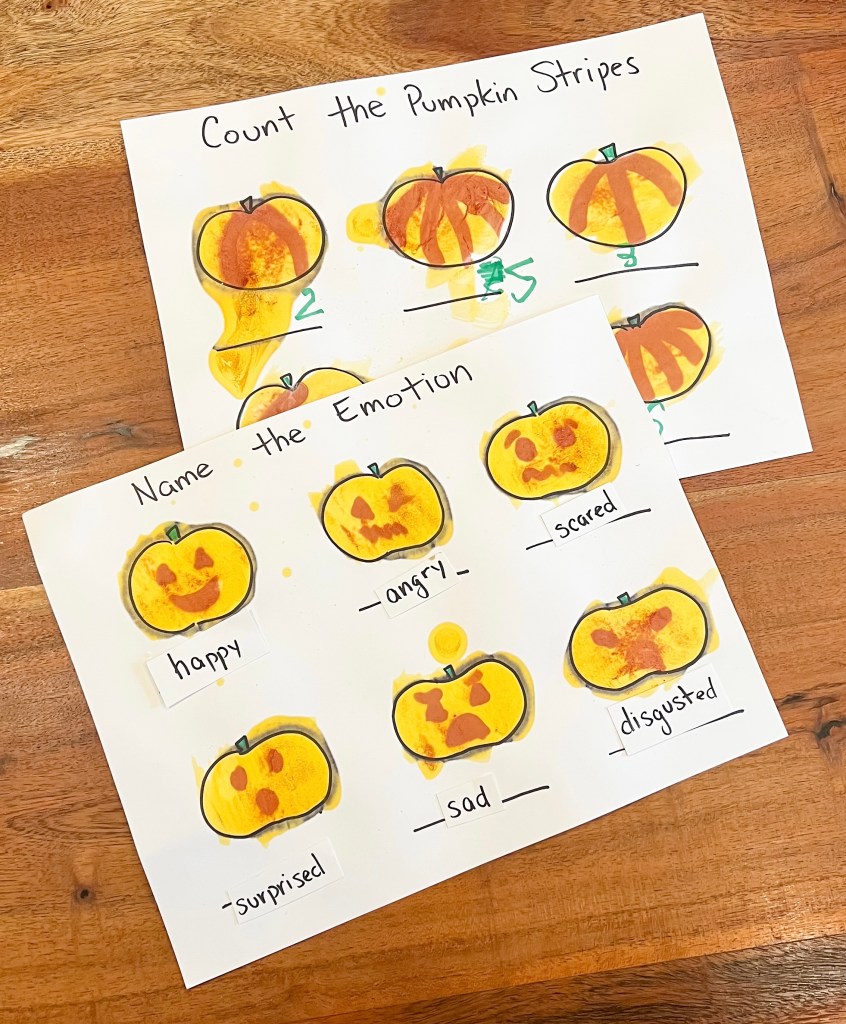 Count the Pumpkin Stripes
2
5
3
5
Name the Emotion
happy
angry
scared
surprised
sad
disgusted